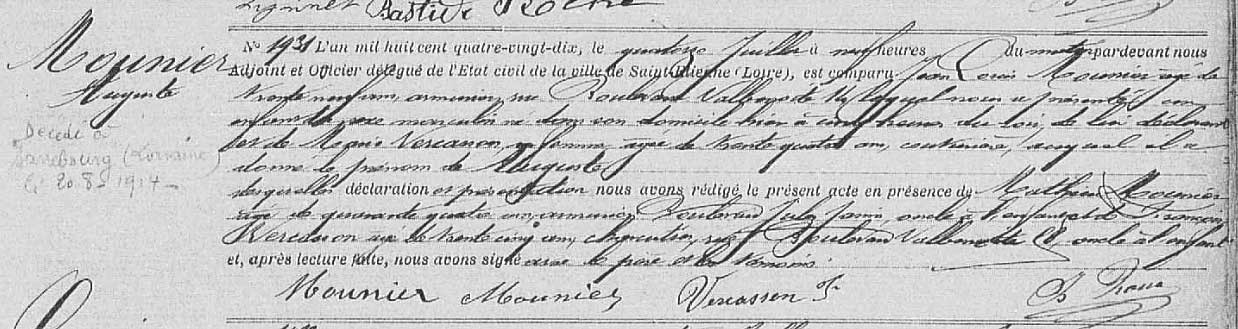 Mounier
Auguste
Décédé à
Sarrebourg (Lorraine)
le 20-8-1914-
No 1931 L'an mil huit cent quatre-vingt-dix, le quatorze Juillet à neuf heures du matin pardevant nous
Adjoint et Officier délégué de l'Etat civil de la ville de Saint-Etienne (Loire), est comparu Jean Louis Mounier âgé de
trente neuf ans, armurier, rue Boulevard Valbenoite lequel nous a présenté un
enfant de sexe masculin né dans son domicile hier à cinq heures du soir, de lui déclarant
et de Marie Vercasson, sa femme, âgée de trente quatre ans, couturière, auquel il a
donné le prénom de Auguste
desquelles déclaration et présentation nous avons rédigé le présent acte en présence de Mathieu Mounier
âgé de quarante quatre ans, armurier, Boulevard Jules Janin, oncle à l'enfant et de François
Vercasson âgé de trente cinq ans, Boulevard Valbenoite 8, oncle à l'enfant
et, après lecture faite, nous avons signé avec le père et les témoins.
Mounier Mounier Vercasson